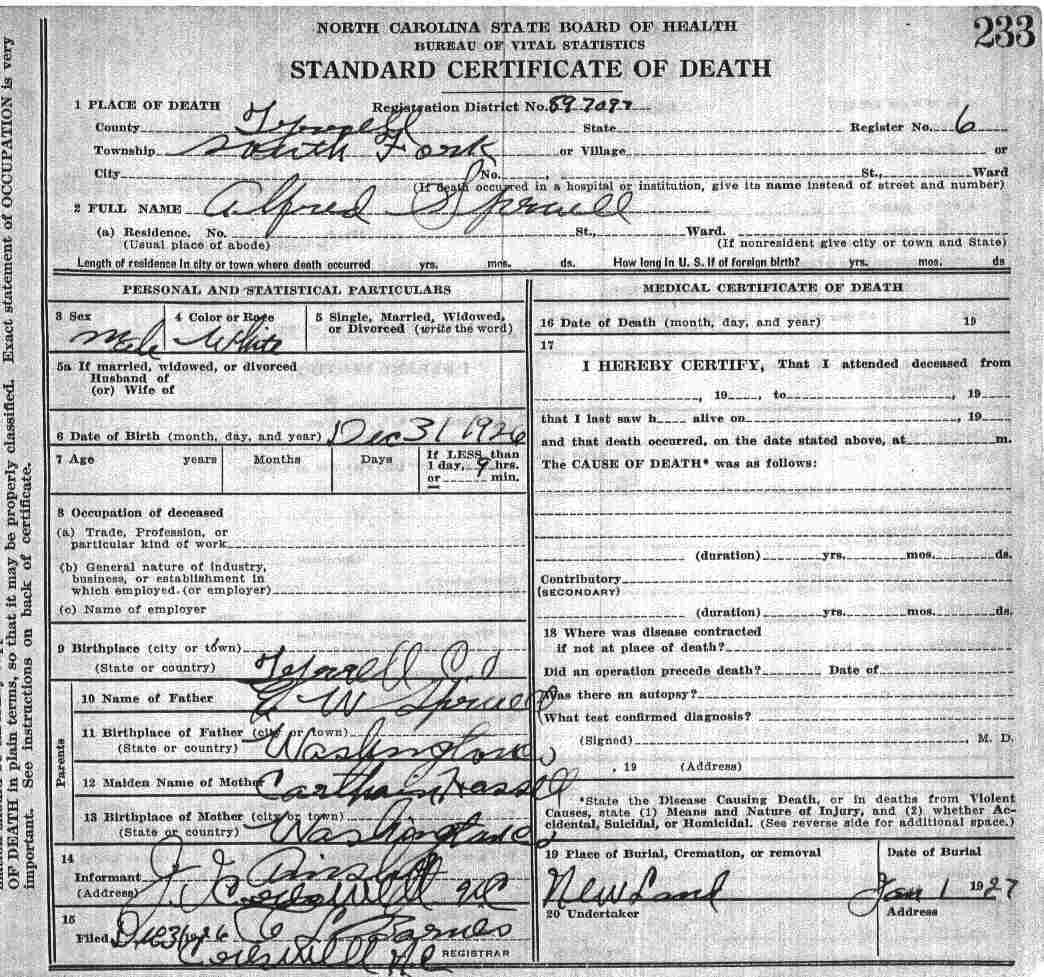 233
NORTH CAROLINA STATE BOARD OF HEALTH
BUREAU OF VITAL STATISTICS
STANDARD CERTIFICATE OF DEATH
1 PLACE OF DEATH Registration District No. 89-7097
County Tyrrell State Register No. 6
Township South Fork or Village or
City No. , St., Ward
(If death occurred in a hospital or institution, give its name instead of street and number)
2 FULL NAME Alfred Spruell
(a) Residence. No. St., Ward.
(Usual place of abode) (If nonresident give city or town and State)
Length of residence in city or town where death occurred yrs. mos. ds. How long in U. S. if of foreign birth? yrs. mos. ds
PERSONAL AND STATISTICAL PARTICULARS
3 Sex 4 Color or Race 5 Single, Married, Widowed,
or Divorced (write the word)
Male White
5a If married, widowed, or divorced
Husband of
(or) Wife of
6 Date of Birth (month, day, and year) Dec 31 1926
7 Age years Months Days If LESS than
1 day, 9 hrs.
or min.
8 Occupation of deceased
(a) Trade, Profession, or
particular kind of work
(b) General nature of industry,
business, or establishment in
which employed (or employer)
(c) Name of employer
9 Birthplace (city or town)
(State or country) Tyrrell Co
Parents
10 Name of Father W Spruell
11 Birthplace of Father (city or town)
(State or country) Washington Co
12 Maiden Name of Mother Hassell
13 Birthplace of Mother (city or town)
(State or country) Washington Co
14
Informant J. Ainsley
(Address) Creswell NC
15
Filed Dec 31 1926 L Barnes
Creswell NC REGISTRAR
MEDICAL CERTIFICATE OF DEATH
16 Date of Death (month, day, and year) 19
17
I HEREBY CERTIFY, That I attended deceased from
, 19 , to , 19
that I last saw h alive on , 19
and that death occurred, on the date stated above, at m.
The CAUSE OF DEATH* was as follows:
(duration) yrs. mos. ds.
Contributory
(SECONDARY)
(duration) yrs. mos. ds.
18 Where was disease contracted
if not at place of death?
Did an operation precede death? Date of
Was there an autopsy?
What test confirmed diagnosis?
(Signed) , M. D.
, 19 (Address)
*State the Disease Causing Death, or in deaths from Violent
Causes, state (1) Means and Nature of Injury, and (2) whether Ac-
cidental, Suicidal, or Homicidal. (See reverse side for additional space.)
19 Place of Burial, Cremation, or removal Date of Burial
New Land Jan 1 1927
20 Undertaker Address
OF DEATH in plain terms, so that it may be properly classified. Exact statement of OCCUPATION is very
important. See instructions on back of certificate.